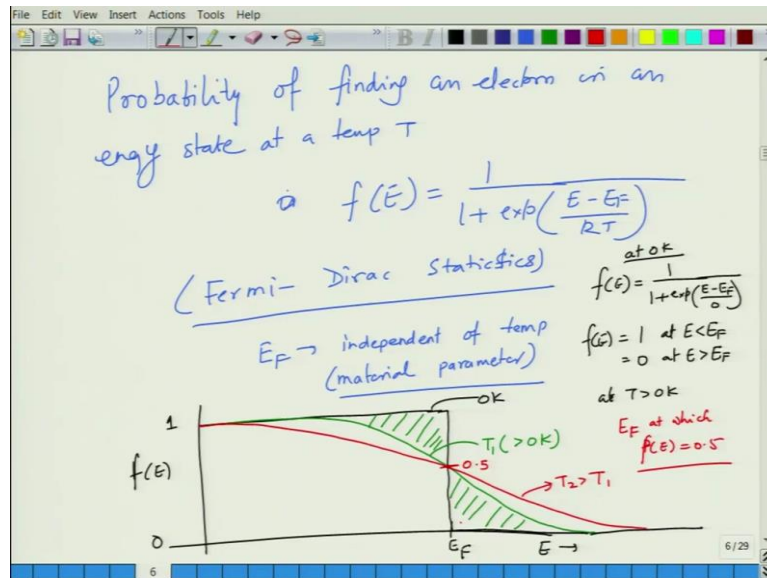 File Edit View Insert Actions Tools Help
Probability of finding an electron in an
enqy state at a temp T
is f(E) = 1 / (1 + exp((E - EF) / kT))
(Fermi- Dirac Statistics)
EF → independent of temp
(material parameter)
at 0K
f(E) = 1 / (1+exp((E-EF)/0))
f(E) = 1 at E<EF
= 0 at E>EF
at T>0K
EF at which
f(E)=0.5
0K
1
T1(>0K)
f(E)
0.5
T2>T1
0
EF
E →
6/29
6